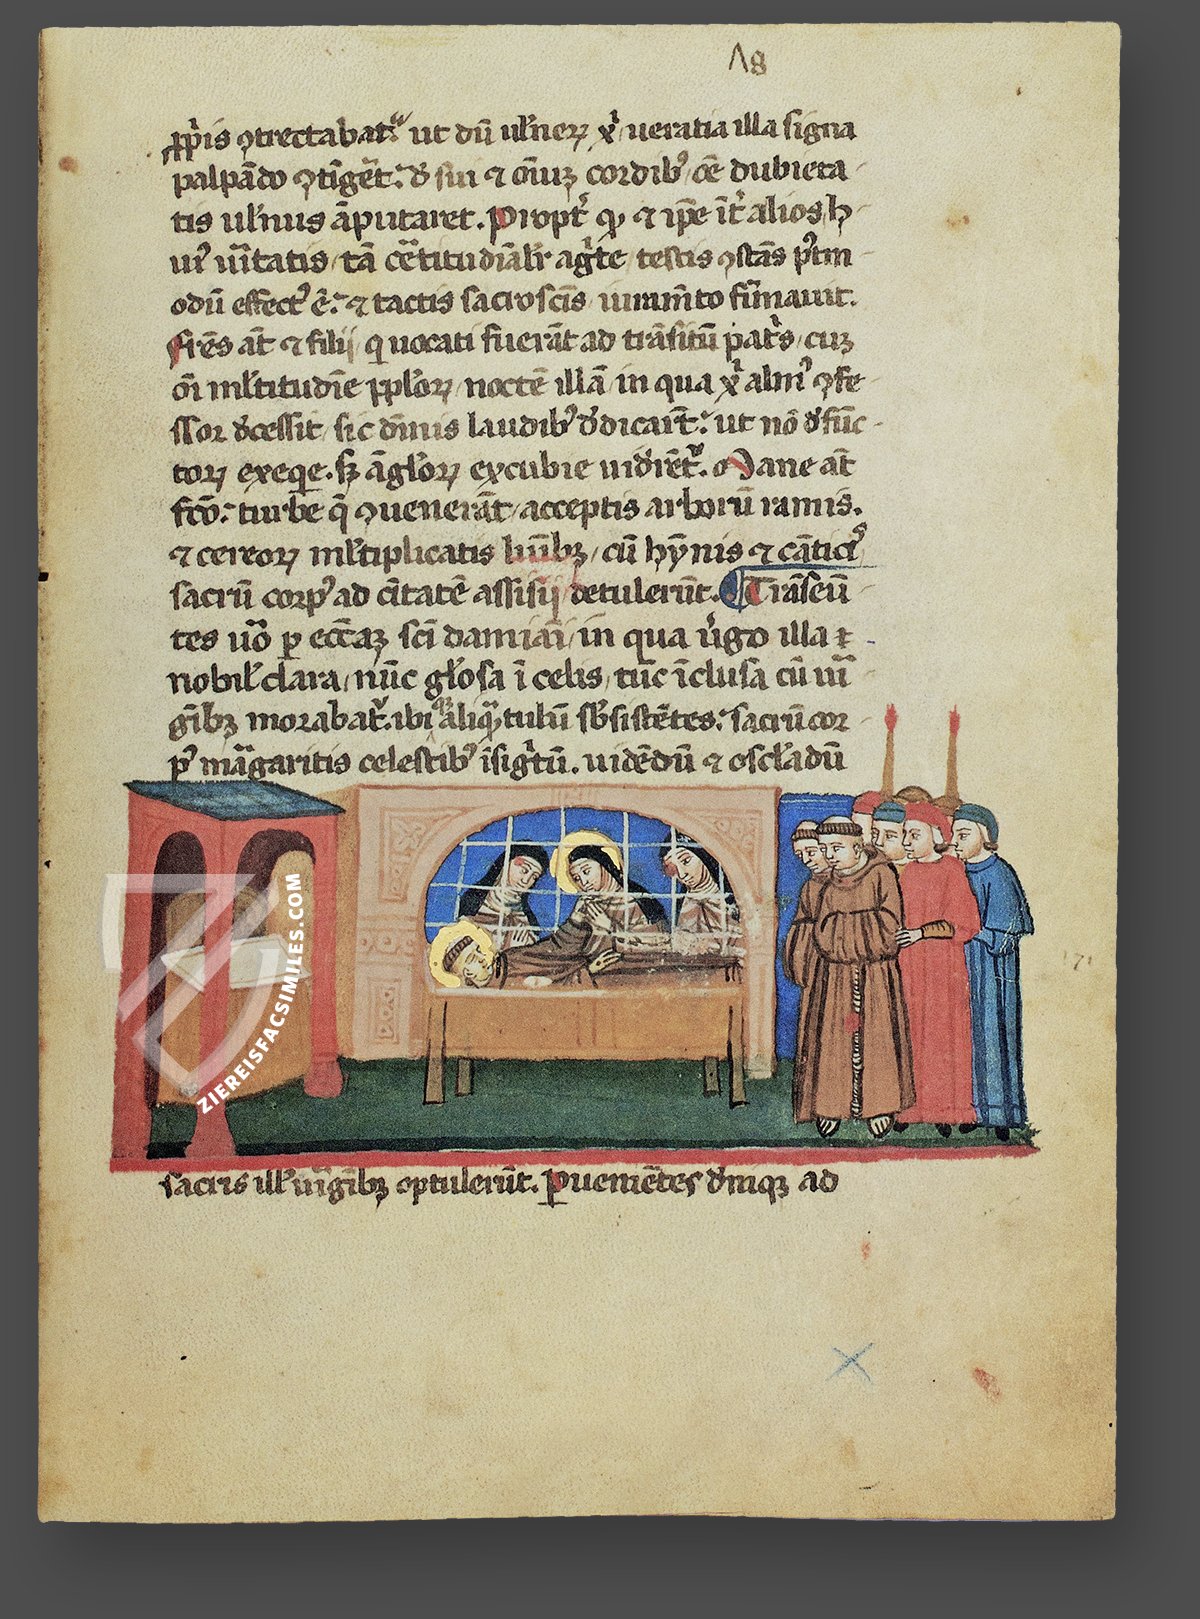 Λ8
ꝓp̄is ꝯtrectabat᷑. ut dū ul'neꝝ x̄ ueratia illa signa
palpādo ꝯtiget: đ sui ⁊ oīuꝫ cordib; oē dubieta
tis ul'nus āputaret. Propt̄ qꝫ ⁊ ip̄e īt̄ alios h
ui᷒ ūitatis tā certitudīalr̄ agīte testis ꝯstās p̄tm
odū effect᷒ ē: ⁊ tactis sacroscīs iuram̄to firmauit.
Fr̄es āt ⁊ filii q̄ uocati fuerāt ad trāsitū pat̄s cuꝫ
oī ml̄titudīe ꝓpl'oꝝ noctē illā in qua x̄ alm᷒ ꝯfe
ssor đcessit sic dīnis laudib; đdicarūt: ut nō đfūc
toꝝ exeqe. sꝫ āgl'oꝝ excubie uiđrēt᷑. Mane āt
fcō: turbe q̄ ꝯuenerāt acceptis arborū ramis.
⁊ cereoꝝ ml̄tiplicatis luībꝫ cū hȳnis ⁊ cātic᷒
sacrū corp᷒ ad ciītatē assisij detulerūt. ¶ Trāseū
tes uō ꝑ eccaꝫ scī damiāi in qua ūgo illa ⁊
nobil' clara nūc gl'osa ī celis tūc īclusa cū uī
gībꝫ morabat᷑. ibi aliq̄tulū sb̄sistētes. sacrū cor
p᷒ māgaritis celestib; īsigītū. uidēdū ⁊ oscl'adū
sacris ill' uīgībꝫ optulerūt. Puenietes đniqꝫ ad
171
ZIEREISFACSIMILES.COM